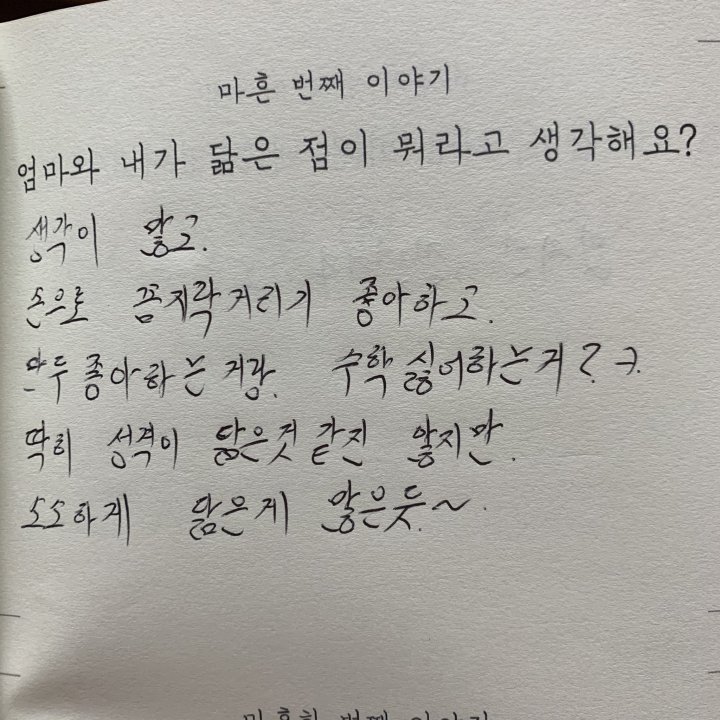 마흔 번째 이야기
엄마와 내가 닮은 점이 뭐라고 생각해요?
생각이 많고.
손으로 꼼지락거리기 좋아하고.
만두 좋아하는 거랑. 수학 싫어하는거? ㅋ.
딱히 성격이 닮은것 같진 않지만.
소소하게 닮은게 많은듯~.
마흔한 번째 이야기